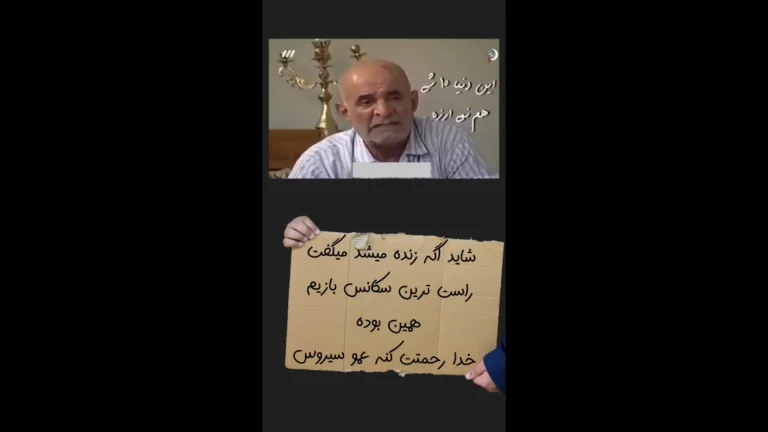 این دنیا ۱۰ شی
هم نمی ارزه
شاید اگه زنده میشد میگفت
راست ترین سکانس بازیم
همین بوده
خدا رحمتت کنه عمو سیروس